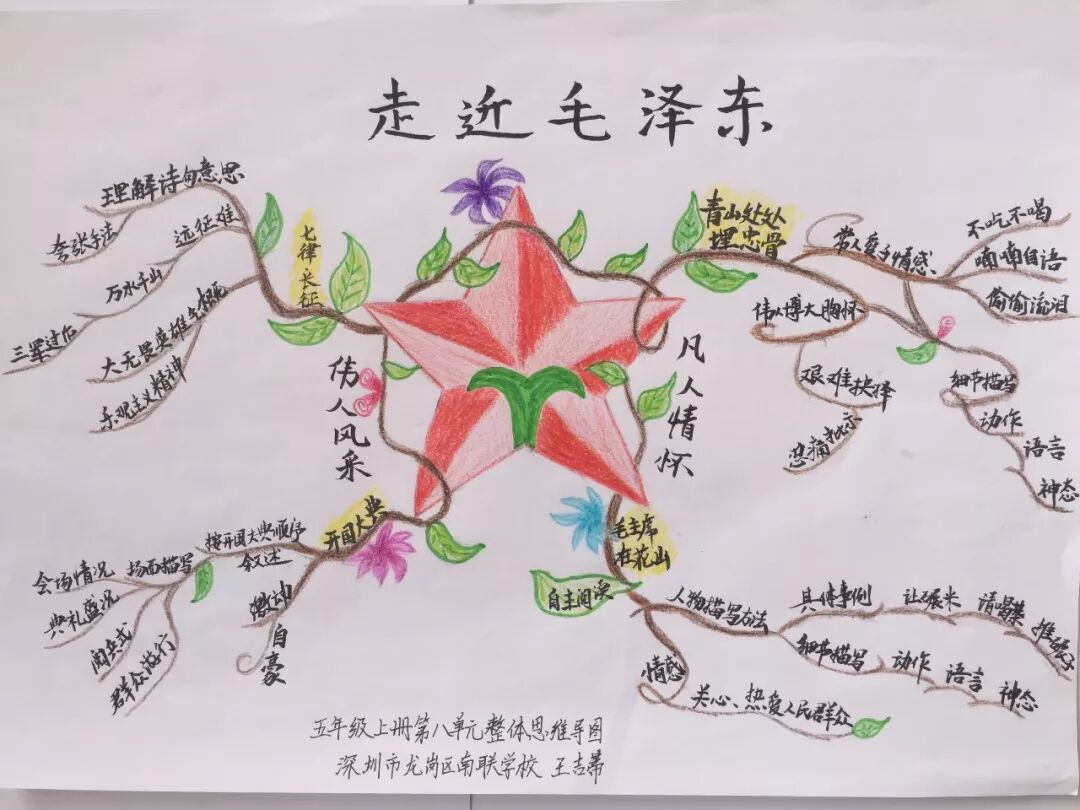 走近毛泽东
伟人风采
七律 长征
理解诗句意思
夸张手法
远征难
万水千山
三军过后
大无畏英雄气概
乐观主义精神
开国大典
按开国大典顺序
叙述
场面描写
会场情况
典礼盛况
阅兵式
群众游行
激动
自豪
凡人情怀
青山处处
埋忠骨
常人爱子情感
不吃不喝
喃喃自语
偷偷流泪
伟人博大胸怀
艰难抉择
悲痛批示
细节描写
动作
语言
神态
毛主席
在花山
自主阅读
人物描写方法
具体事例
让碾米
请喝茶
推碾子
细节描写
动作
语言
神态
情感
关心、热爱人民群众
五年级上册第八单元整体思维导图
深圳市龙岗区南联学校 王吉